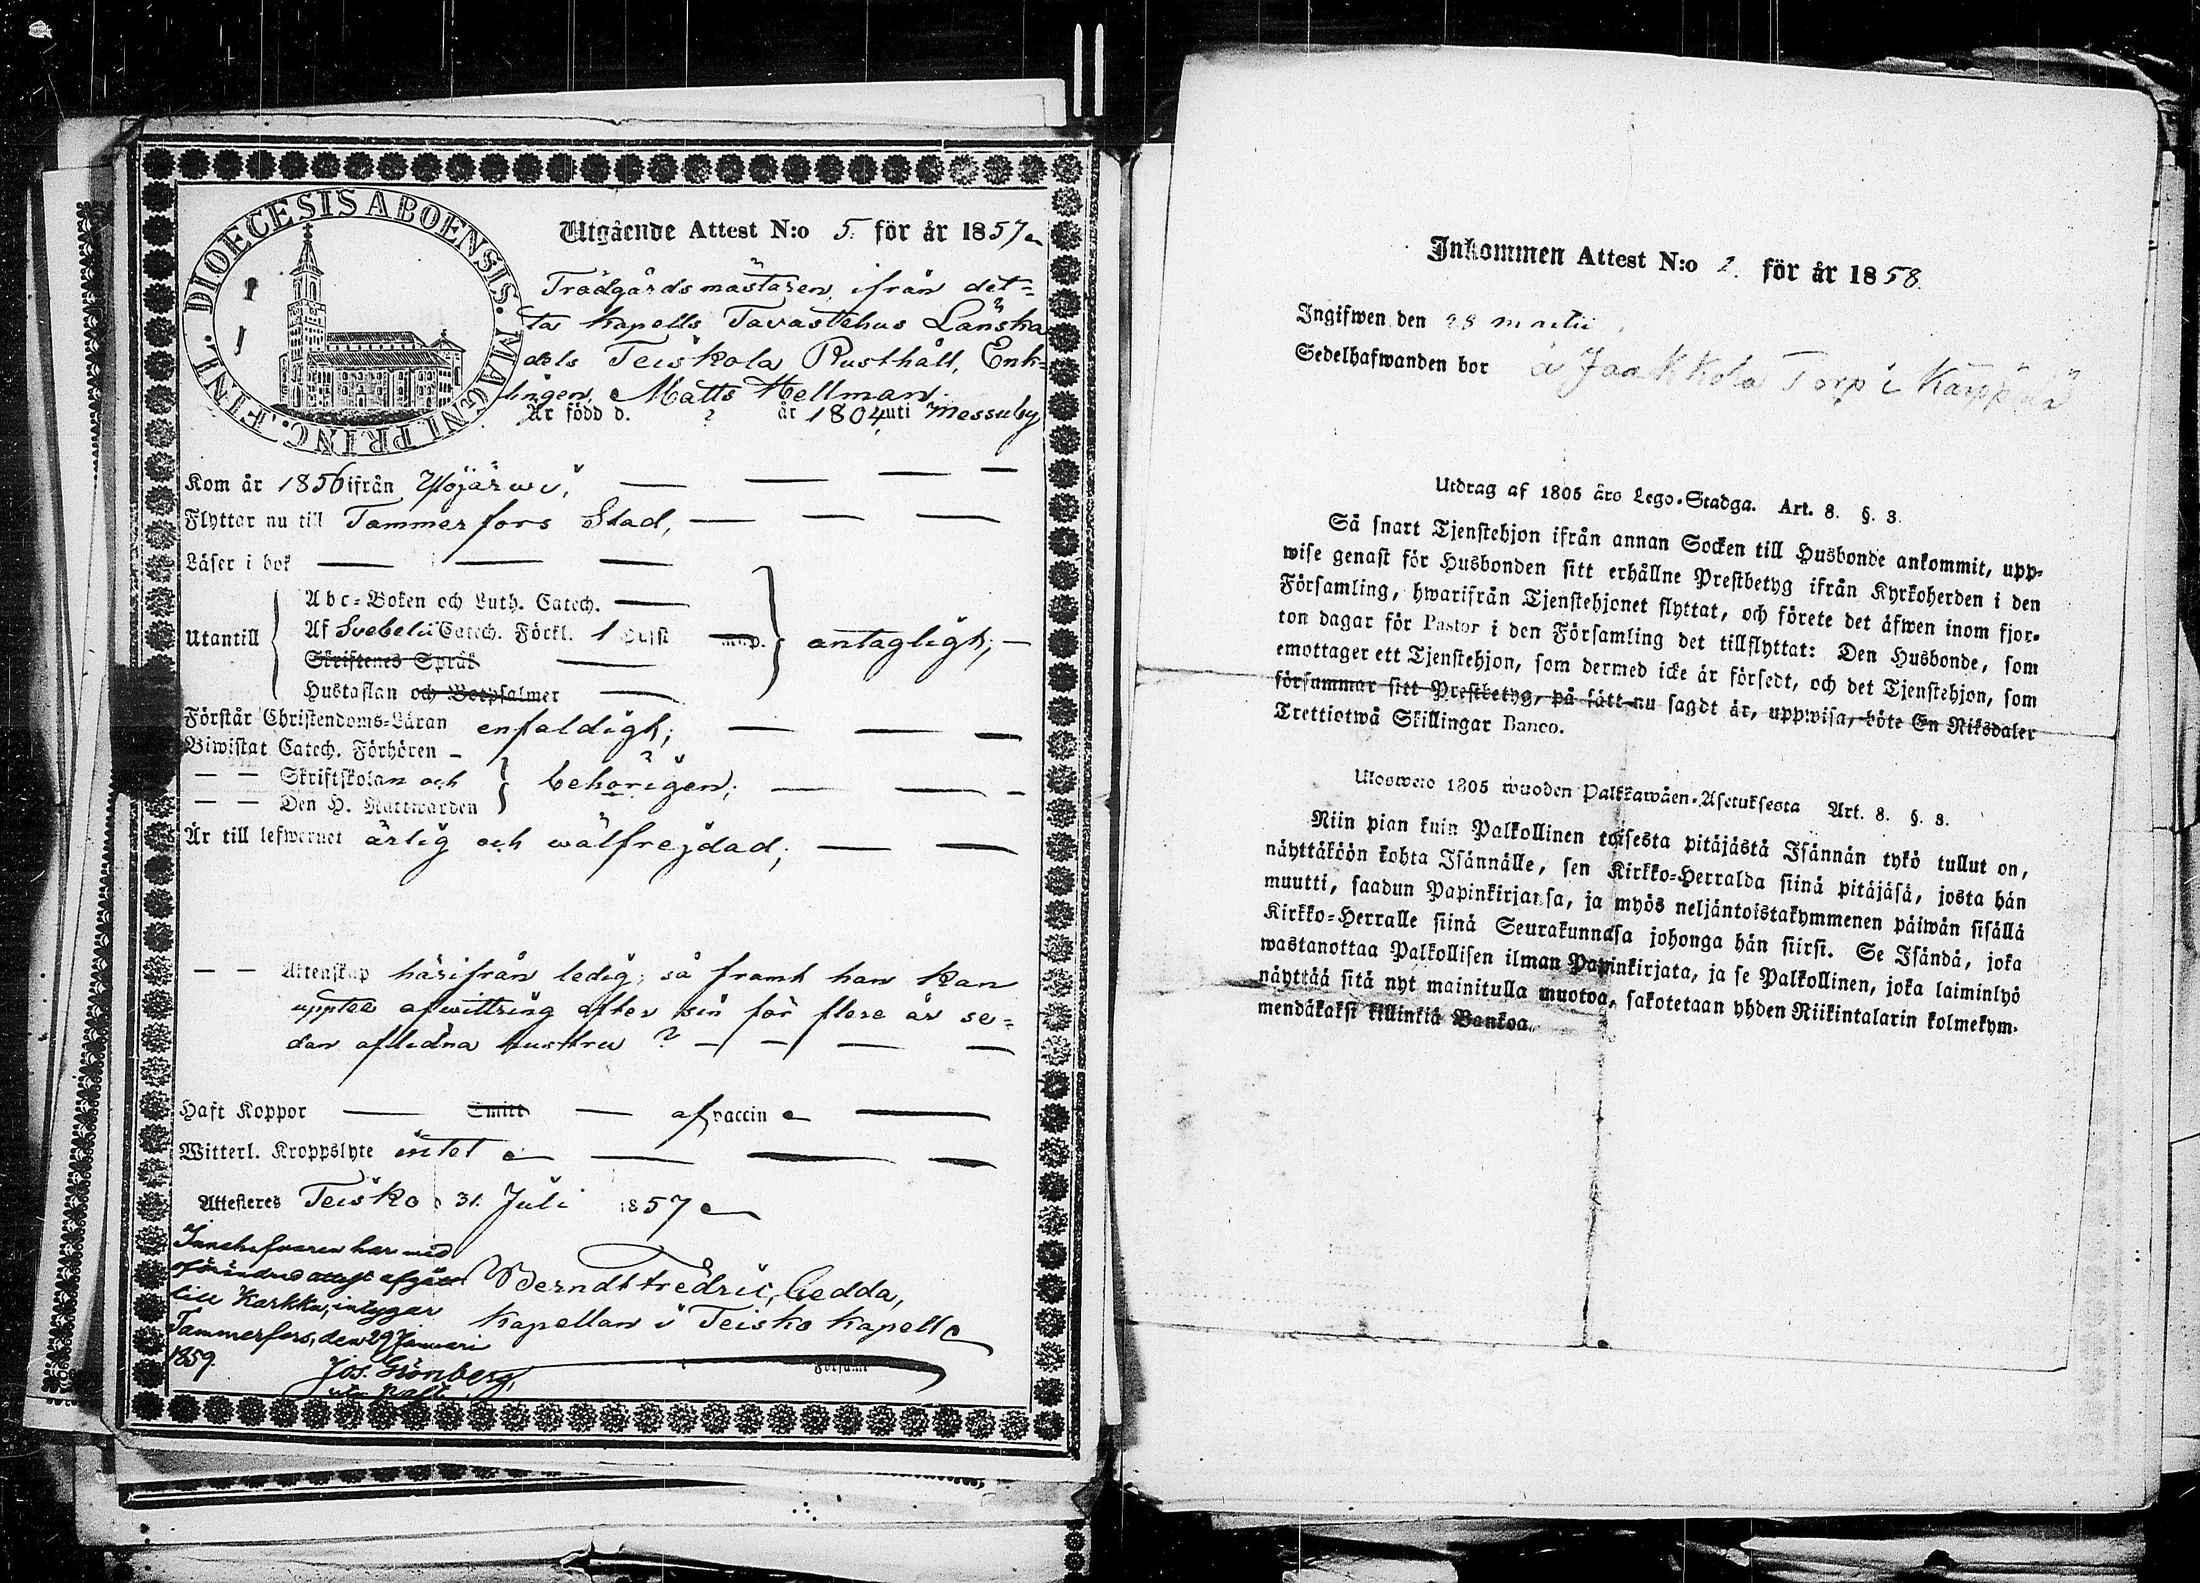 DIOECESIS ABOENSIS. MAGNI PRINC. FINL.
Utgående Attest N:o 5. för år 1857
Trädgårdsmästaren ifrån det=
ta kapells Tavastehus Länska
dels Teiskola Rusthåll, Enk=
lingen, Matts Hellman.
Är född d. ? år 1804 uti Messuby
Kom år 1856 ifrån Ylöjärwi,
Flyttar nu till Tammerfors Stad,
Läser i bok
Abc=Boken och Luth. Catech.
Utantill Af Svebelii Catech. Förkl. 1 antagligt;
Skriftenes Språk
Hustaflan och Botpsalmer
Förstår Christendoms=Läran enfaldigt;
Biwistat Catech. Förhören
— — Skriftskolan och behörigen;
— — Den H. Nattwarden
Är till lefwernet ärlig och wälfrejdad;
— — Äktenskap härifrån ledig, så framt han kan
uppte afwittring efter sin för flere år se=
dan aflidna hustru ?
Haft Koppor Smitt af vaccin
Witterl. Kroppslyte intet
Attesteras Teisko d 31. Juli 1857
Innehafvaren har med
oförändrad attest afgått
till Karkku, intygar
Tammerfors, den 29 Januari
1859.
Jos. Grönberg,
Berndt Fredric Gedda,
Kapellan i Teisko kapell
Församl
Inkommen Attest N:o 2. för år 1858.
Ingifwen den 28 martii
Sedelhafwanden bor å Jaakkola Torp i Karppala
Utdrag af 1805 års Lego-Stadga. Art. 8. §. 3.
Så snart Tjenstehjon ifrån annan Socken till Husbonde ankommit, upp=
wise genast för Husbonden sitt erhållne Prestbetyg ifrån Kyrkoherden i den
Församling, hwarifrån Tjenstehjonet flyttat, och förete det äfwen inom fjor=
ton dagar för Pastor i den Församling det tillflyttat: Den Husbonde, som
emottager ett Tjenstehjon, som dermed icke är försedt, och det Tjenstehjon, som
försummar sitt Prestbetyg, på sätt nu sagdt är, uppwisa, böte En Riksdaler
Trettiotwå Skillingar Banco.
Ulosweto 1805 wuoden Palkkawäen-Asetuksesta Art. 8. §. 3.
Niin pian kuin Palkollinen toisesta pitäjästä Isännän tykö tullut on,
näyttäköön kohta Isännälle, sen Kirkko=Herralda siinä pitäjäsä, josta hän
muutti, saadun Papinkirjansa, ja myös neljäntoistakymmenen päiwän sisällä
Kirkko=Herralle siinä Seurakunnasa johonga hän siirsi. Se Isändä, joka
wastanottaa Palkollisen ilman Papinkirjata, ja se Palkollinen, joka laiminlyö
näyttää sitä nyt mainitulla muotoa, sakotetaan yhden Riikintalarin kolmekym=
mendäkaksi killinkiä Bankoa.